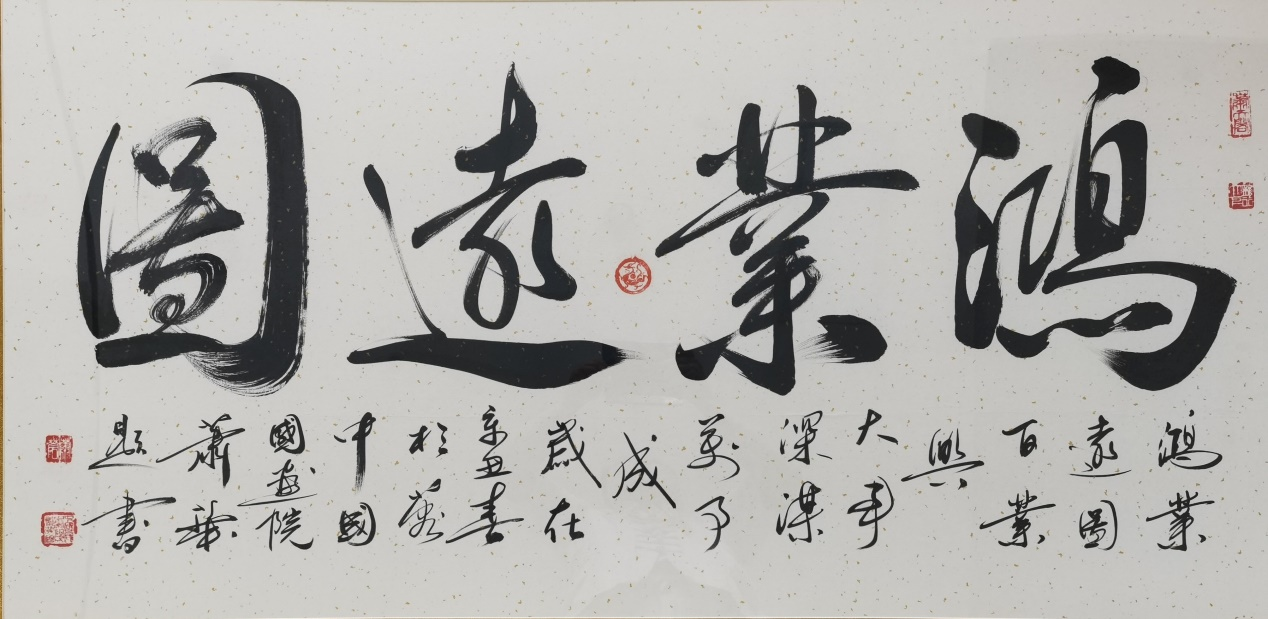 鴻業遠圖
鴻業
遠圖
百業
興
大事
深謀
萬事
成
歲在
辛丑春
於
中國
國畫院
蕭
題書